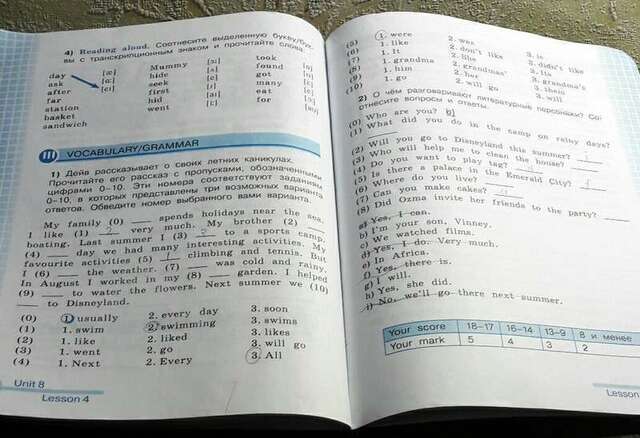 4) Reading aloud. Соотнесите выделенную букву/бук-
вы с транскрипционным знаком и прочитайте слова.
day [æ] Mummy [ɔ:] took
ask [ɑ:] hide [ə] found
after [eɪ] seek [ɜ:] got
far first [aɪ] many
station hid [ɪ] eat
basket went [e] for
sandwich
III VOCABULARY/GRAMMAR
1) Дейв рассказывает о своих летних каникулах.
Прочитайте его рассказ с пропусками, обозначенными
цифрами 0–10. Эти номера соответствуют заданиям
0–10, в которых представлены три возможных варианта
ответов. Обведите номер выбранного вами варианта.
My family (0) ___ spends holidays near the sea.
I like (1) 2 very much. My brother (2) ___
boating. Last summer I (3) 2 to a sports camp.
(4) ___ day we had many interesting activities. My
favourite activities (5) 1 climbing and tennis. But
I (6) ___ the weather. (7) ___ was cold and rainy.
In August I worked in my (8) ___ garden. I helped
(9) ___ to water the flowers. Next summer we (10)
___ to Disneyland.
(0) 1. usually 2. every day 3. soon
(1) 1. swim 2. swimming 3. swims
(2) 1. like 2. liked 3. likes
(3) 1. went 2. go 3. will go
(4) 1. Next 2. Every 3. All
Unit 8
Lesson 4
(5) 1. were 2. was 3. is
(6) 1. like 2. don't like 3. didn't like
(7) 1. It 2. Its 3. Its
(8) 1. grandma 2. grandmas' 3. grandma's
(9) 1. him 2. her 3. them
(10) 1. go 2. will go 3. will
2) О чём разговаривают литературные персонажи? Со-
отнесите вопросы и ответы.
(0) Who are you? b)
(1) What did you do in the camp on rainy days?
(2) Will you go to Disneyland this summer?
(3) Who will help me to clean the house?
(4) Do you want to play tag?
(5) Is there a palace in the Emerald City?
(6) Where do you live?
(7) Can you make cakes?
(8) Did Ozma invite her friends to the party?
a) Yes, I can.
b) I'm your son, Vinney.
c) We watched films.
d) Yes, I do. Very much.
e) In Africa.
f) Yes, there is.
g) I will.
h) Yes, she did.
i) No, we'll go there next summer.
Your score 18–17 16–14 13–9 8 и менее
Your mark 5 4 3 2
Lesson